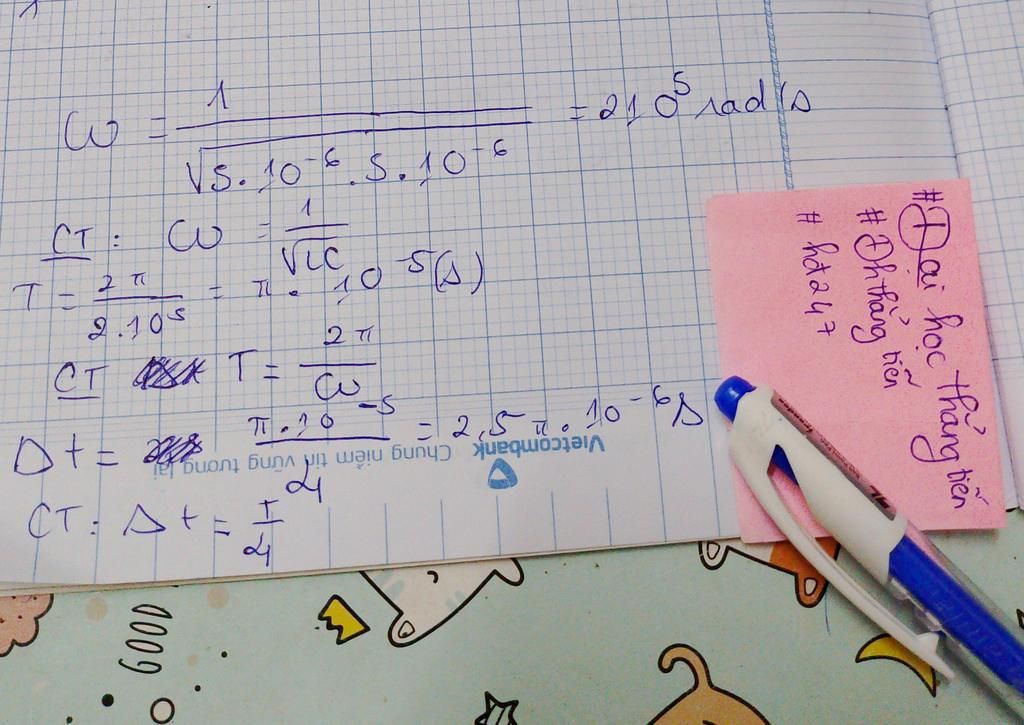 ω = 1 / √5.10⁻⁶.5.10⁻⁶ = 2 10⁵ rad/s
CT: ω = 1 / √LC
T = 2π / 2.10⁵ = π.10⁻⁵(s)
CT T = 2π / ω
Δt = π.10⁻⁵ / 4 = 2,5π.10⁻⁶s
CT: Δt = T / 4
Vietcombank Chung niềm tin vững tương lai
#Đại học thẳng tiến
#Đh thẳng tiến
#hđ247